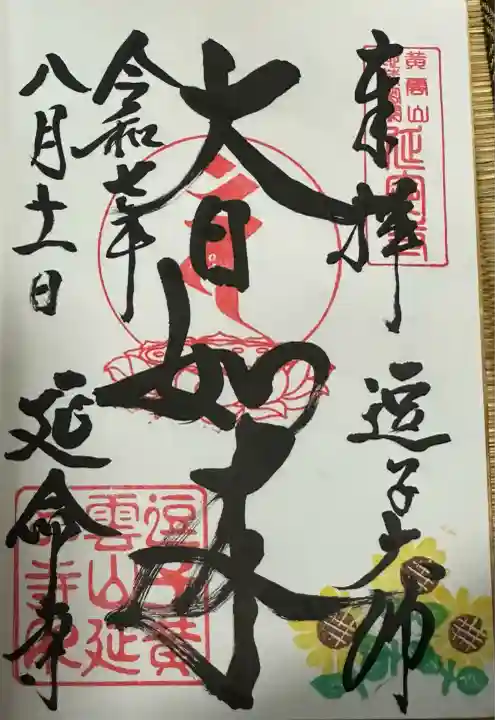 奉拝
逗子大師
大日如来
令和七年
八月十一日
延命寺
黄雲山
延命寺
逗子黄
雲山延
命寺印